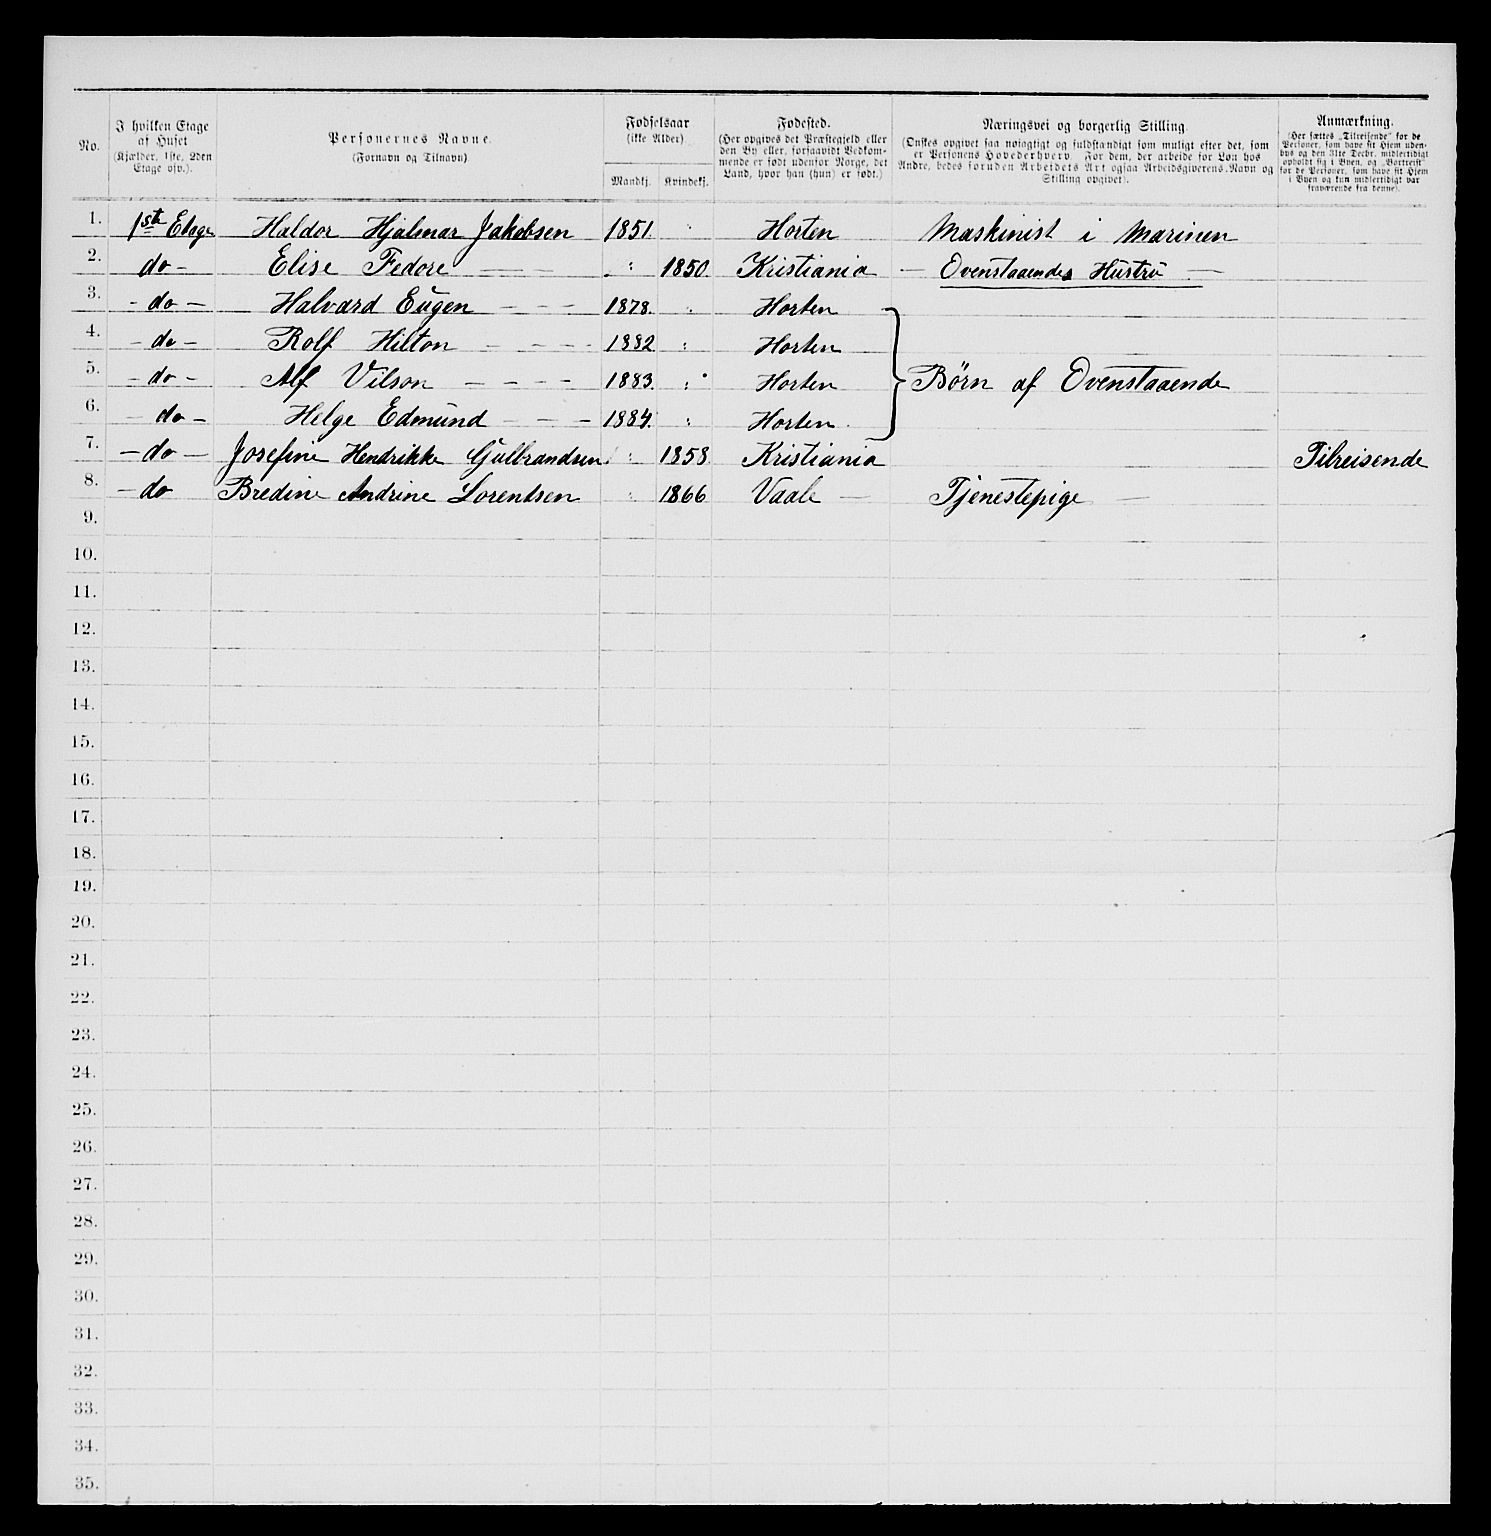 No.
I hvilken Etage
af Huset
(Kjælder, 1ste, 2den
Etage osv.).
Personernes Navne.
(Fornavn og Tilnavn)
Fødselsaar
(ikke Alder)
Mandkj.
Kvindekj.
Fødested.
(Her opgives det Præstegjeld eller
den By eller, forsaavidt Vedkom-
mende er født udenfor Norge, det
Land, hvor han (hun) er født.)
Næringsvei og borgerlig Stilling.
(Ønskes opgivet saa nøiagtigt og fuldstændigt som muligt efter det, som
er Personens Hovederhverv. For dem, der arbeide for Løn hos
Andre, bedes foruden Arbeidets Art ogsaa Arbeidsgiverens Navn og
Stilling opgivet).
Anmærkning.
(Her sættes „Tilreisende“ for de
Personer, som have sit Hjem uden-
bys og den 31te Decbr. midlertidigt
opholdt sig i Byen, og „Bortreist“
for de Personer, som have sit Hjem
i Byen og kun midlertidigt var
fraværende fra denne).
1. 1ste Etage Haldor Hjalmar Jakobsen 1851. Horten Maskinist i Marinen
2. do - Elise Fedore — — — 1850 Kristiania — Ovenstaaendes Hustru —
3. - do - Halvard Eugen — — — 1878. Horten
4. - do - Rolf Hilton — — — 1882 Horten
5. - do - Alf Vilson — — — — 1883. Horten Børn af Ovenstaaende
6. - do - Helge Edmund — — — 1884. Horten
7. - do - Josefine Hendrikke Gulbrandsen 1858 Kristiania Tilreisende
8. - do Bredine Andrine Lorentsen 1866 Vaale — Tjenestepige —
9.
10.
11.
12.
13.
14.
15.
16.
17.
18.
19.
20.
21.
22.
23.
24.
25.
26.
27.
28.
29.
30.
31.
32.
33.
34.
35.